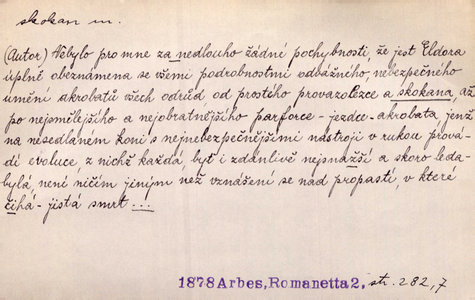 skokan m.
(Autor) Nebylo pro mne za nedlouho žádné pochybnosti, že jest Eldora
úplně obeznámena se všemi podrobnostmi odvážného, nebezpečného
umění akrobatů všech odrůd, od prostého provazolezce a skokana, až
po nejsmělejšího a nejobratnějšího parforce-jezdce-akrobata jenž
na nesedlaném koni s nejnebezpečnějšími nástroji v rukou prová-
dí evoluce, z nichž každá, byť i zdánlivě nejsnažší a skoro leda-
bylá, není ničím jiným než vznášení se nad propastí, v které
číhá - jistá smrt ...
1878 Arbes, Romanetta 2, str. 282, 7